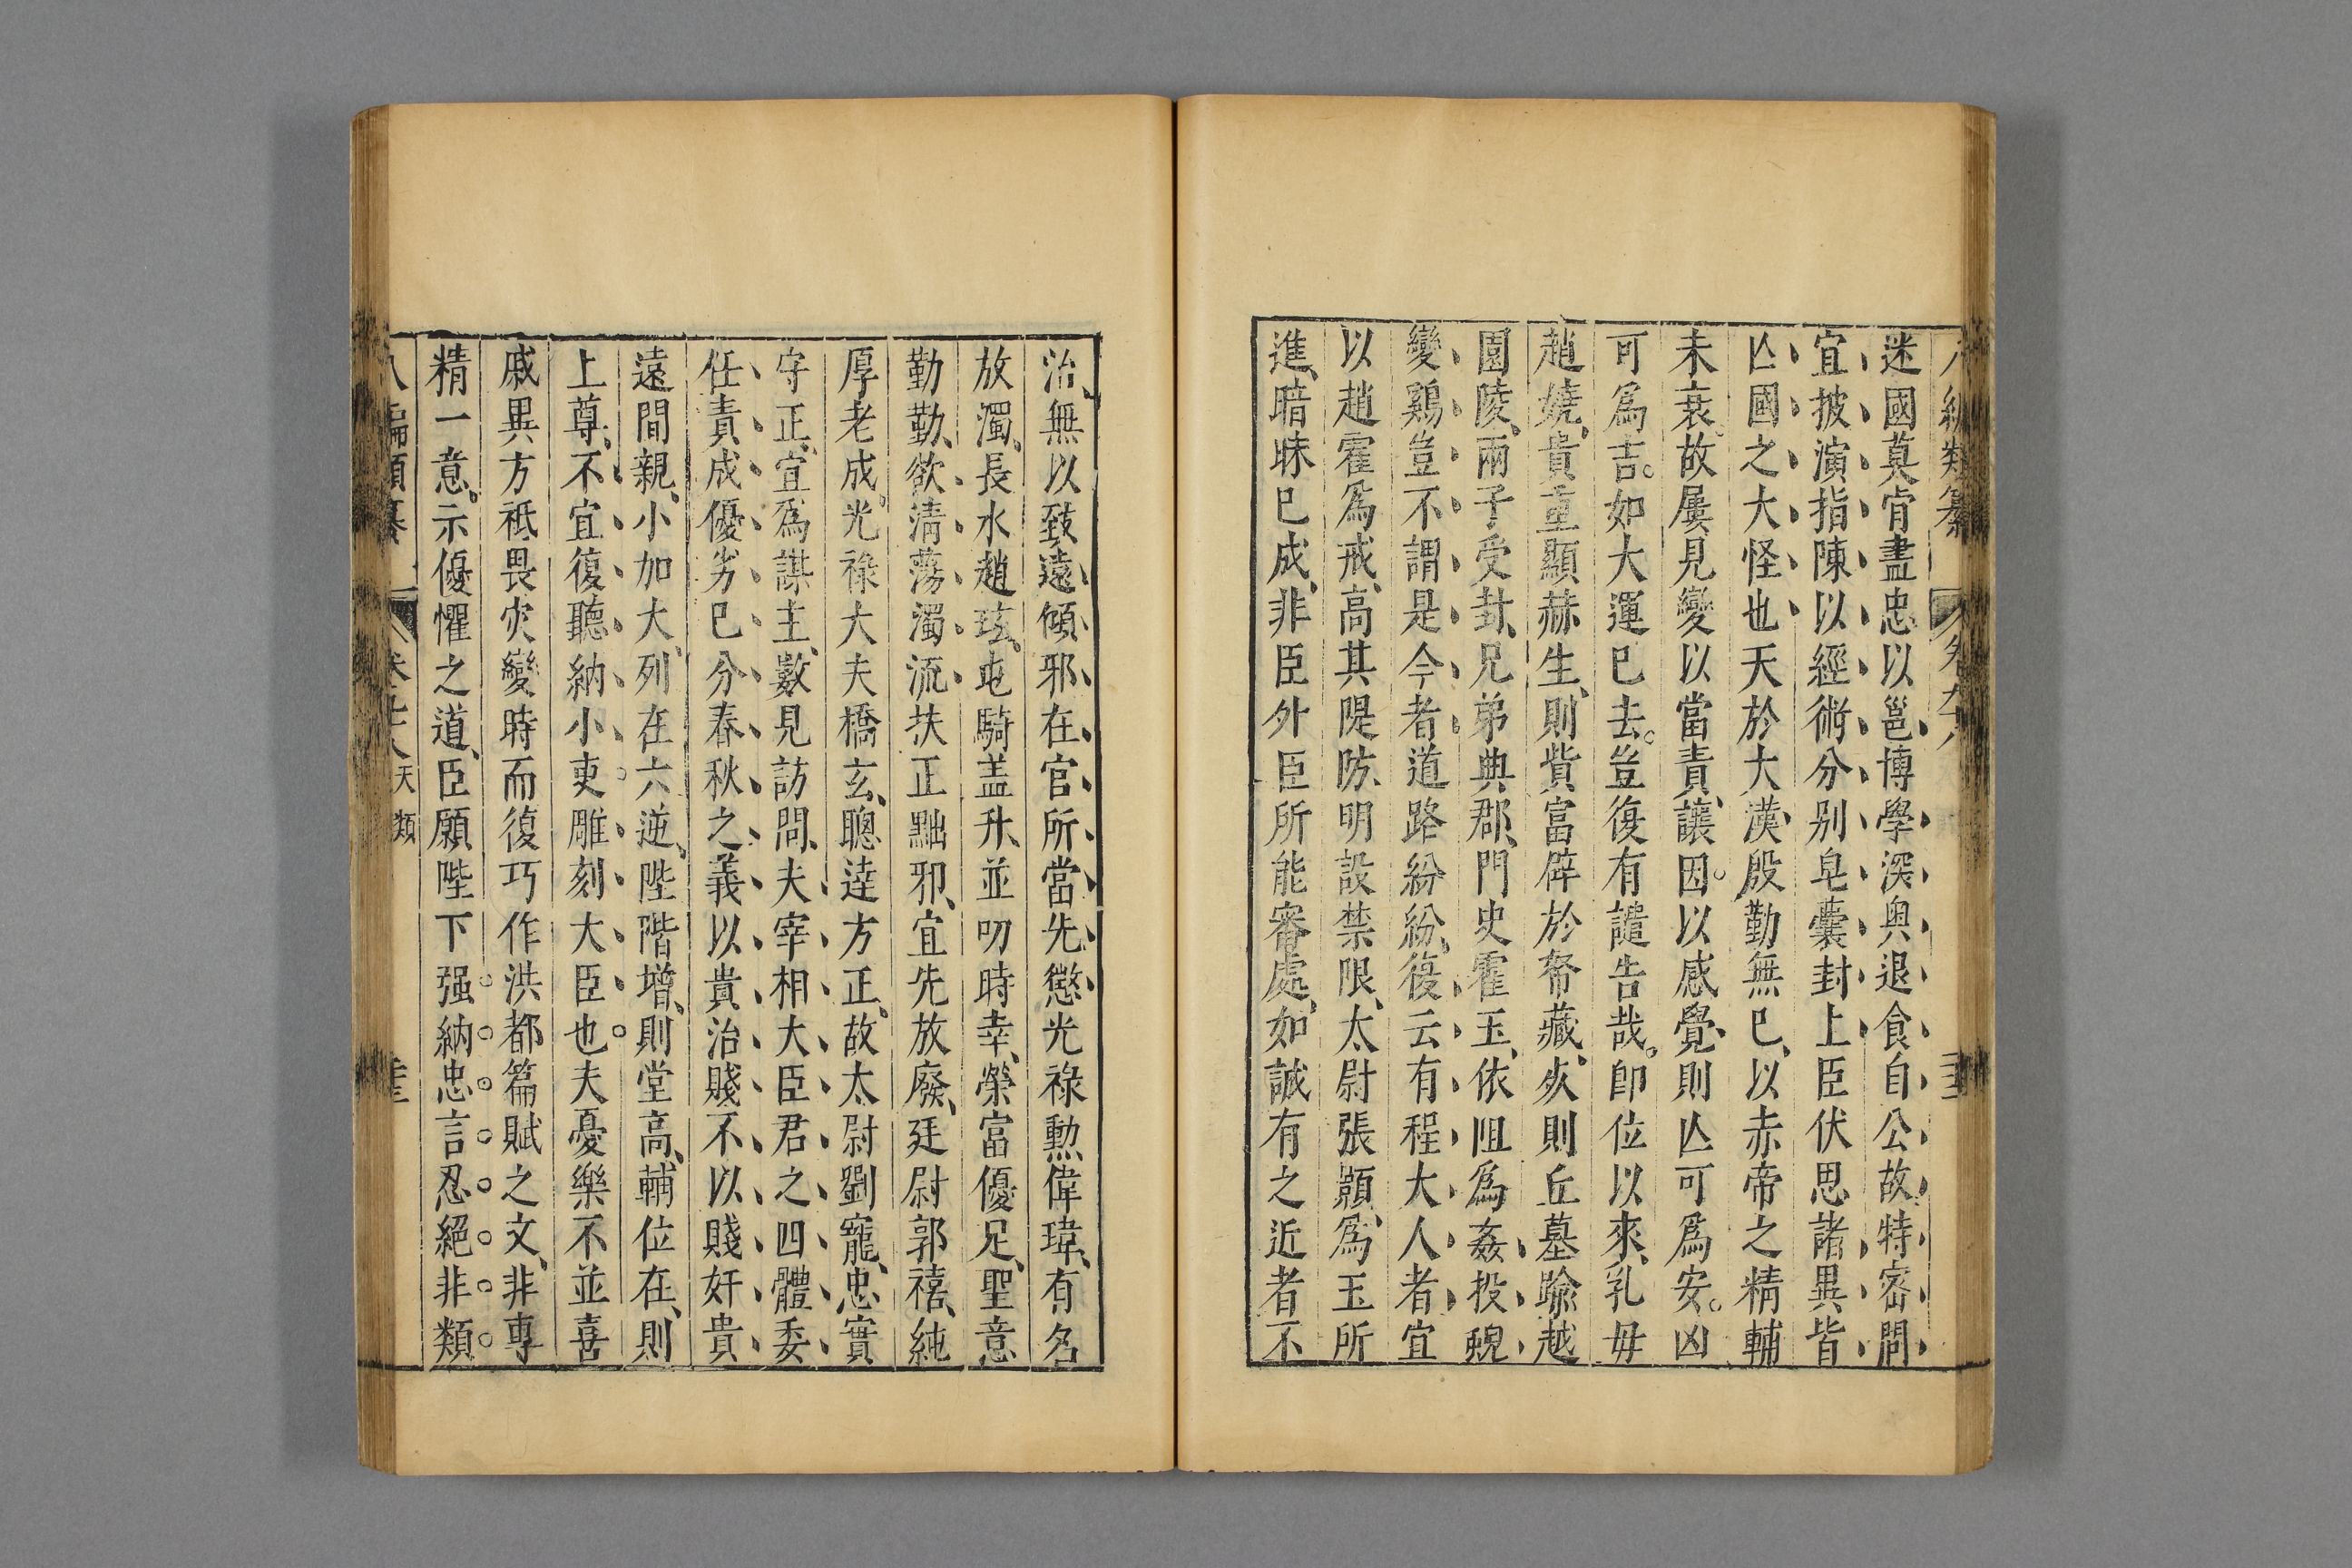 迷國莫肯盡忠以邕博學深奥退食自公故特密問
宜披演指陳以經術分别皂囊封上臣伏思諸異皆
亾國之大怪也天於大漢殷勤無已以赤帝之精輔
未衰故屢見變以當責讓因以感覺則亾可爲安凶
可爲吉如大運已去豈復有譴告哉卽位以來乳毋
趙嬈貴重顯赫生則貲富侔於帑藏灰則丘墓踰越
園陵兩子受封兄弟典郡門史霍玉依阻爲姦投蜺
變鷄豈不謂是今者道路紛紛復云有程大人者宜
以趙霍爲戒高其隄防明設禁限太尉張顥爲玉所
進暗昧已成非臣外臣所能審處如誠有之近者不
治無以致遠傾邪在官所當先懲光祿勲偉璋有名
放濁長水趙玹屯騎盖升並叨時幸榮富優足聖意
勤勤欲清蕩濁流扶正黜邪宜先放廢廷尉郭禧純
厚老成光祿大夫橋玄聰達方正故太尉劉寵忠實
守正宜爲謀主數見訪問夫宰相大臣君之四體委
任責成優劣已分春秋之義以貴治賤不以賤奸貴
遠間親小加大列在六逆陛階增則堂高輔位在則
上尊不宜復聽納小吏雕刻大臣也夫憂樂不並喜
戚異方祗畏灾變時而復巧作洪都篇賦之文非專
精一意示優懼之道臣願陛下强納忠言忍絕非類
天類